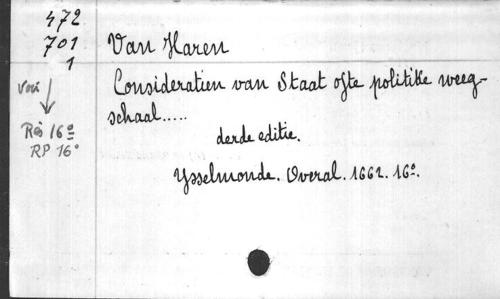 472
701
1
Van Haren
Consideratien van Staat ofte politike weeg-
schaal.....
derde editie.
Ysselmonde. Overal. 1662. 16º.
Voir
Rés 16º
RP 16º